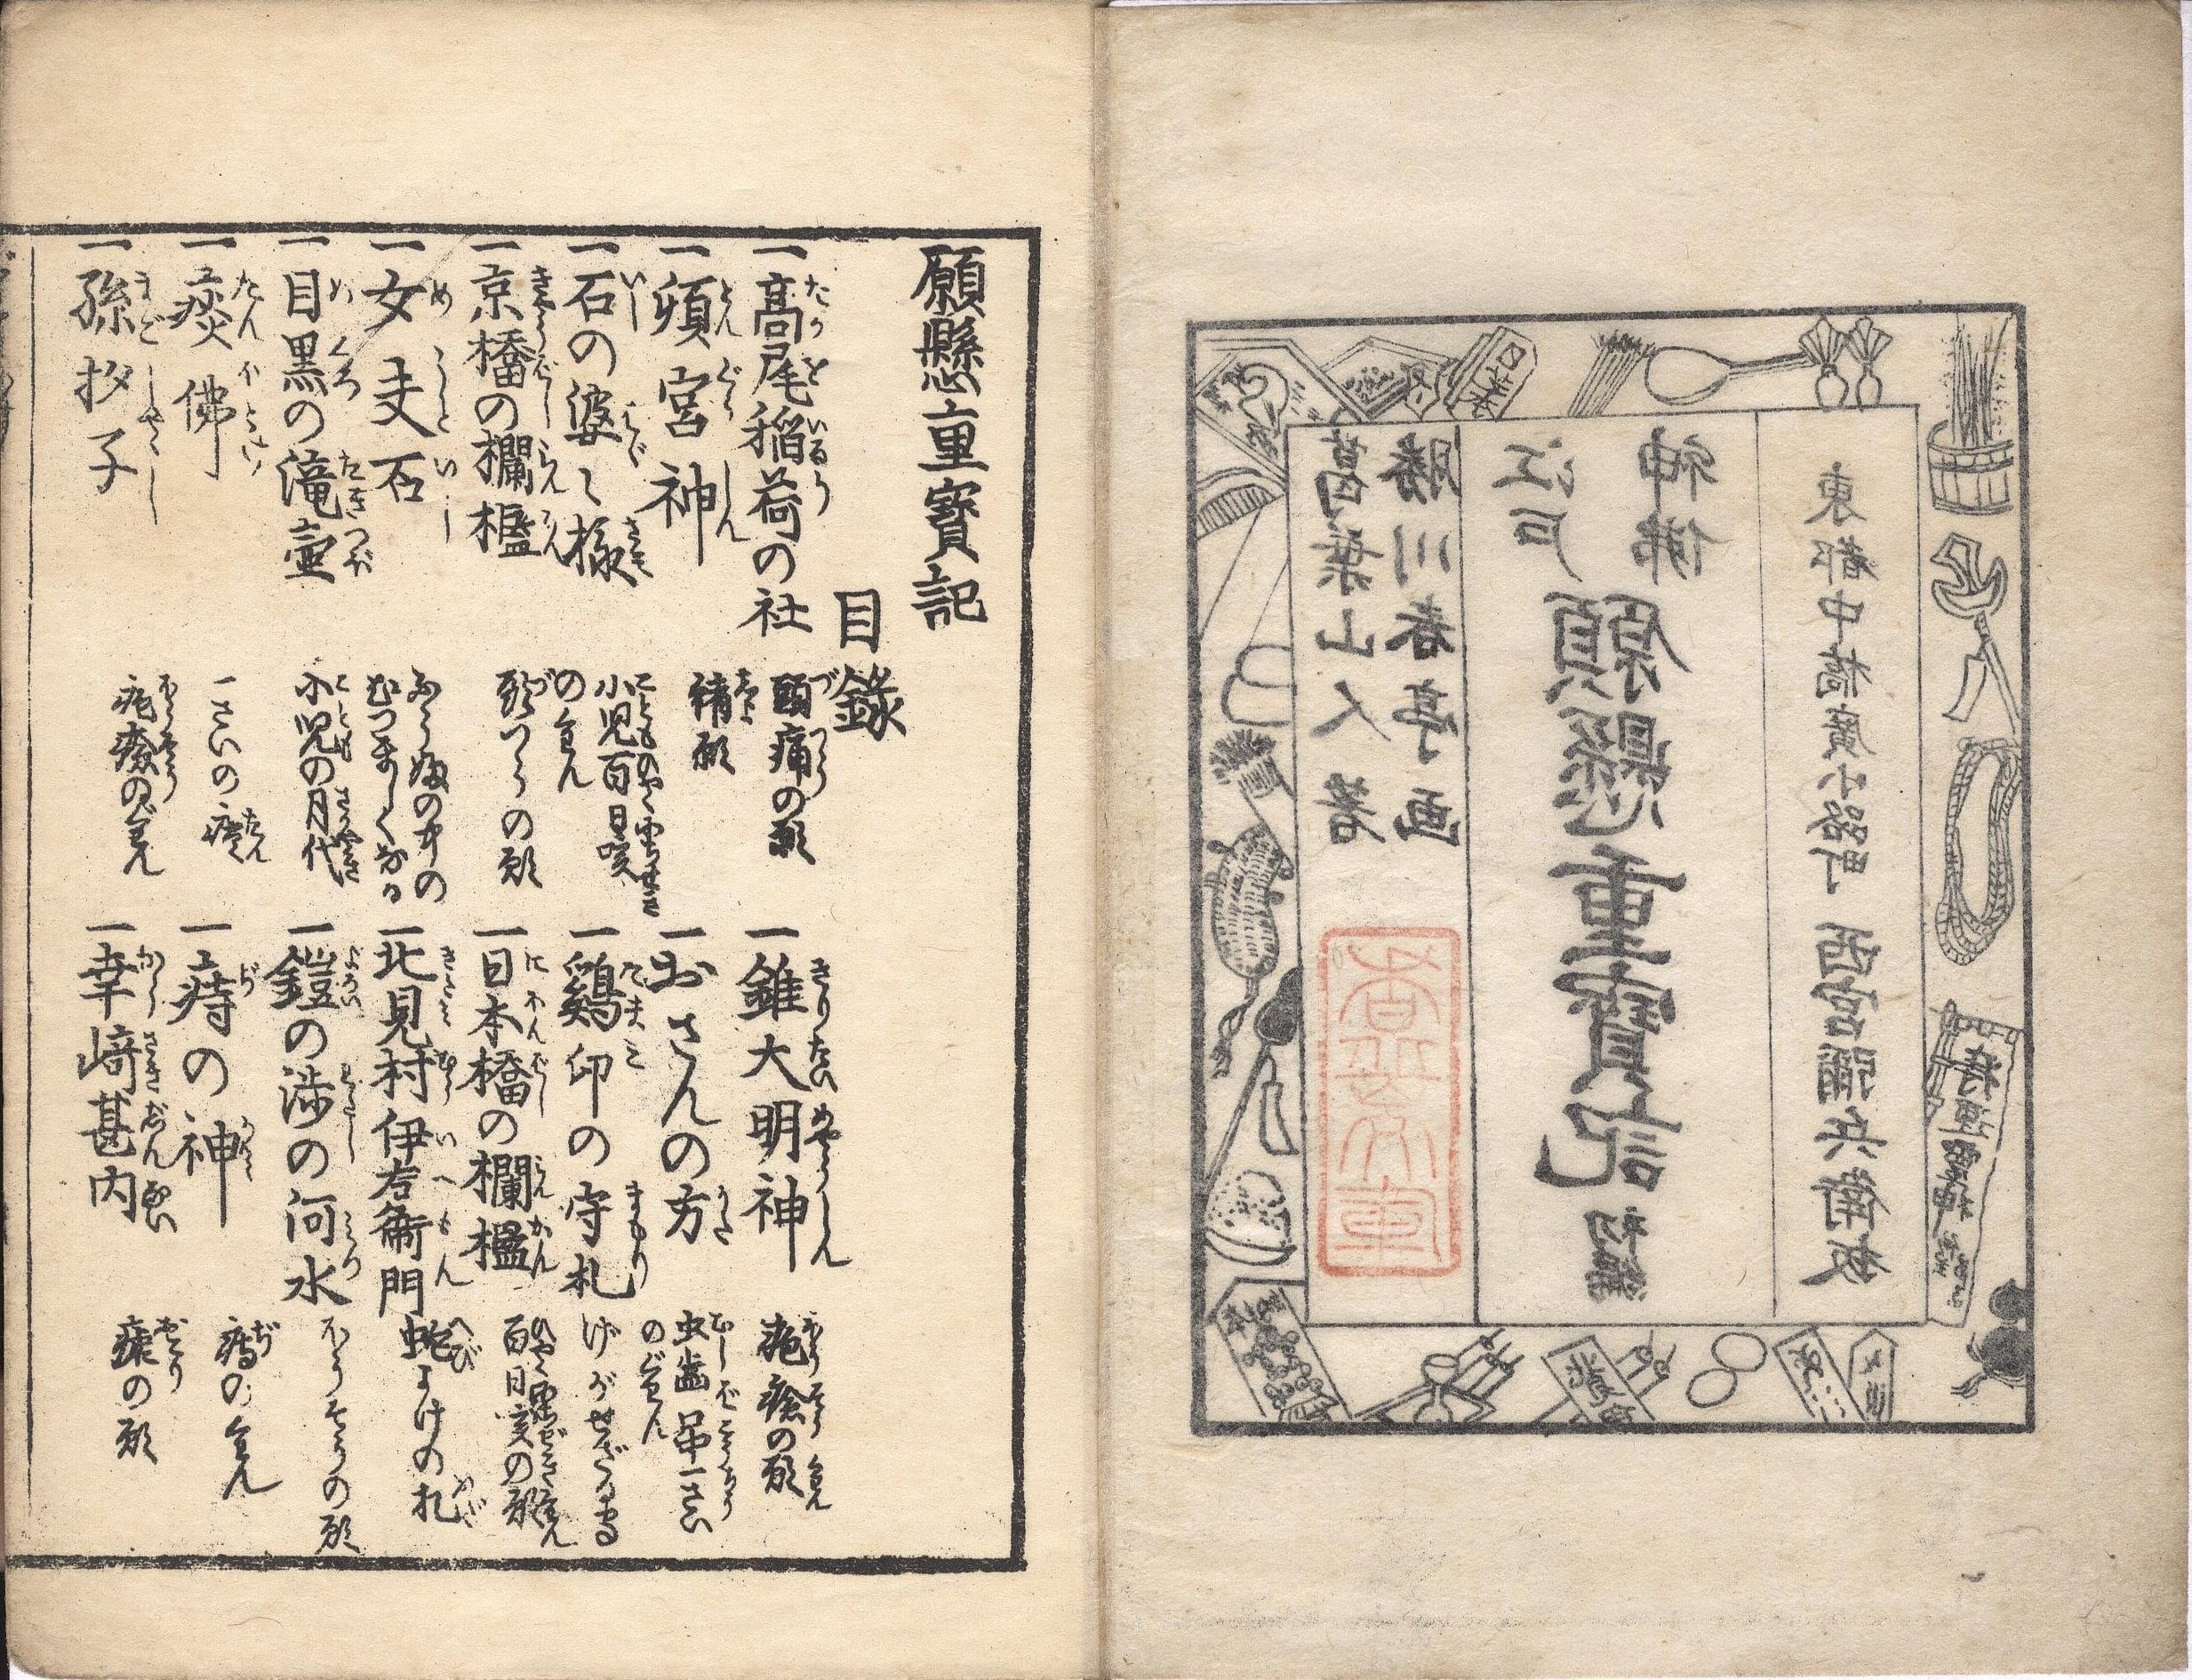 東都中橋廣小路町 西宮彌兵衛板
神佛
江戸
願懸重寳記 初篇
勝川春亭画
萬壽亭正二著
願懸重寳記
目録
一高尾稲荷の社 頭痛の願
一頓宮神
一石の婆々様 小児百日咳の
一京橋の欄檻 頭つうの願
一女夫石 ふうふの中の
むつましくなる
一目黒の滝壷 小児の月代
一痰佛 一さいの痰
一孫杓子 疱瘡のぐわん
一錐大明神 疱瘡の願
一おさんの方 虫歯 一さい
のぐわん
一鶏卵の守札 けがせざる守
一日本橋の欄檻 百日咳の願
一北見村伊右衛門 蛇よけの札
一鎧の渉の河水 ほうそうの願
一痔の神 痔のぐわん
一幸崎甚内 瘧の願